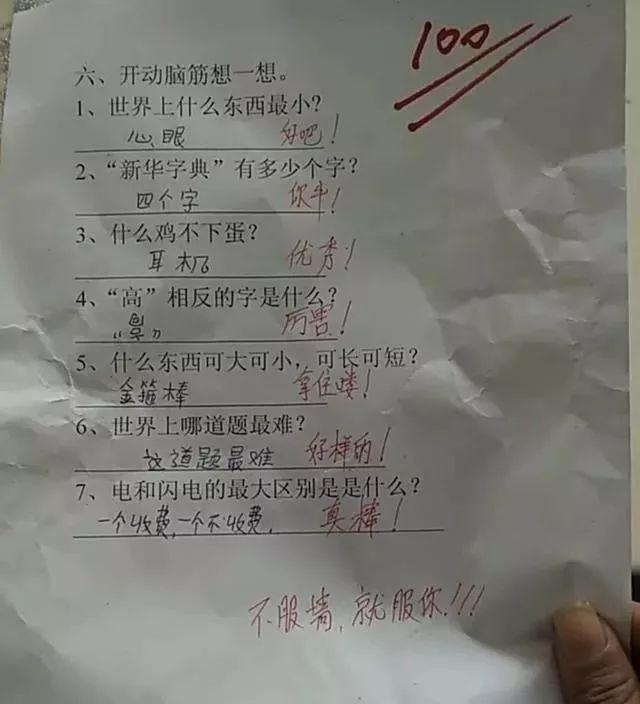 100
六、开动脑筋想一想。
1、世界上什么东西最小?
心眼 好吧!
2、“新华字典”有多少个字?
四个字 你牛!
3、什么鸡不下蛋?
耳机 优秀!
4、“高”相反的字是什么?
厉害!
5、什么东西可大可小，可长可短?
金箍棒 拿住喽!
6、世界上哪道题最难?
这道题最难 好样的!
7、电和闪电的最大区别是是什么?
一个收费,一个不收费. 真棒!
不服墙,就服你!!!